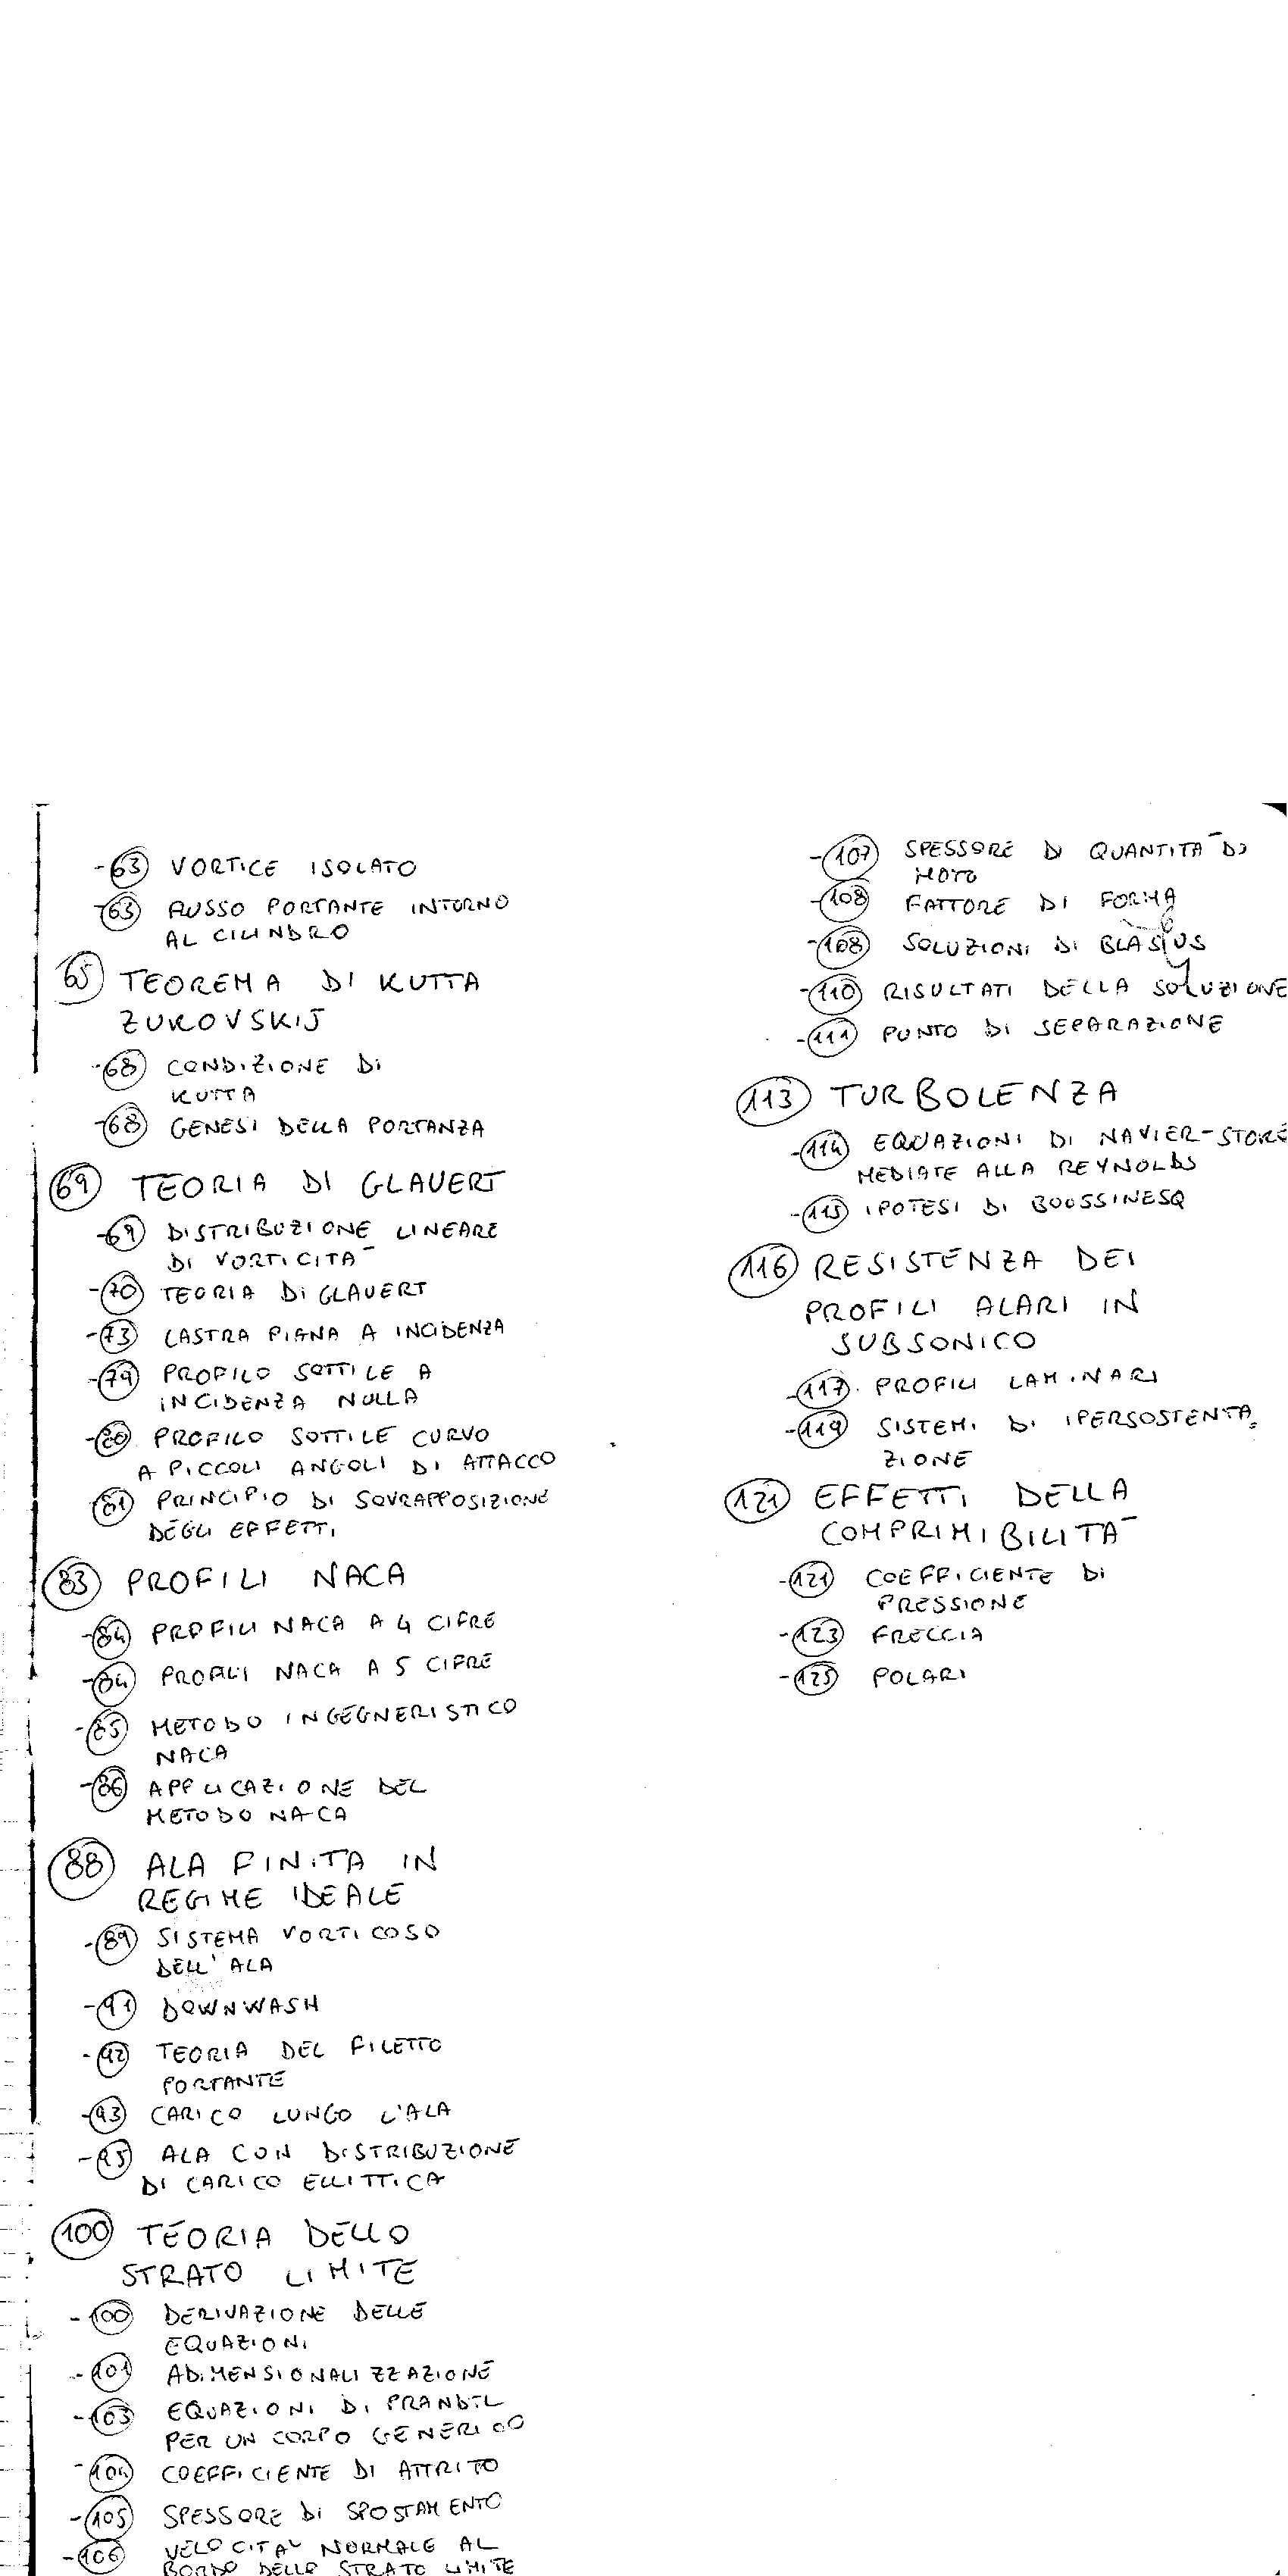 -63 VORTICE ISOLATO
-63 FLUSSO PORTANTE INTORNO
AL CILINDRO
65 TEOREMA DI KUTTA
ZUKOVSKIJ
-68 CONDIZIONE DI
KUTTA
-68 GENESI DELLA PORTANZA
69 TEORIA DI GLAUERT
-69 DISTRIBUZIONE LINEARE
DI VORTICITA'
-70 TEORIA DI GLAUERT
-73 LASTRA PIANA A INCIDENZA
-79 PROFILO SOTTILE A
INCIDENZA NULLA
-80 PROFILO SOTTILE CURVO
A PICCOLI ANGOLI DI ATTACCO
-81 PRINCIPIO DI SOVRAPPOSIZIONE
DEGLI EFFETTI
83 PROFILI NACA
-84 PROFILI NACA A 4 CIFRE
-84 PROFILI NACA A 5 CIFRE
-85 METODO INGEGNERISTICO
NACA
-86 APPLICAZIONE DEL
METODO NACA
88 ALA FINITA IN
REGIME IDEALE
-89 SISTEMA VORTICOSO
DELL'ALA
-91 DOWNWASH
-92 TEORIA DEL FILETTO
PORTANTE
-93 CARICO LUNGO L'ALA
-95 ALA CON DISTRIBUZIONE
DI CARICO ELLITTICA
100 TEORIA DELLO
STRATO LIMITE
-100 DERIVAZIONE DELLE
EQUAZIONI
-101 ADIMENSIONALIZZAZIONE
-103 EQUAZIONI DI PRANDTL
PER UN CORPO GENERICO
-104 COEFFICIENTE DI ATTRITO
-105 SPESSORE DI SPOSTAMENTO
-106 VELOCITA' NORMALE AL
BORDO DELLO STRATO LIMITE
-107 SPESSORE DI QUANTITA' DI
MOTO
-108 FATTORE DI FORMA
-108 SOLUZIONI DI BLASIUS
-110 RISULTATI DELLA SOLUZIONE
-111 PUNTO DI SEPARAZIONE
113 TURBOLENZA
-114 EQUAZIONI DI NAVIER-STOKE
MEDIATE ALLA REYNOLDS
-115 IPOTESI DI BOUSSINESQ
116 RESISTENZA DEI
PROFILI ALARI IN
SUBSONICO
-117 PROFILI LAMINARI
-119 SISTEMI DI IPERSOSTENTA=
ZIONE
121 EFFETTI DELLA
COMPRIMIBILITA'
-121 COEFFICIENTE DI
PRESSIONE
-123 FRECCIA
-125 POLARI